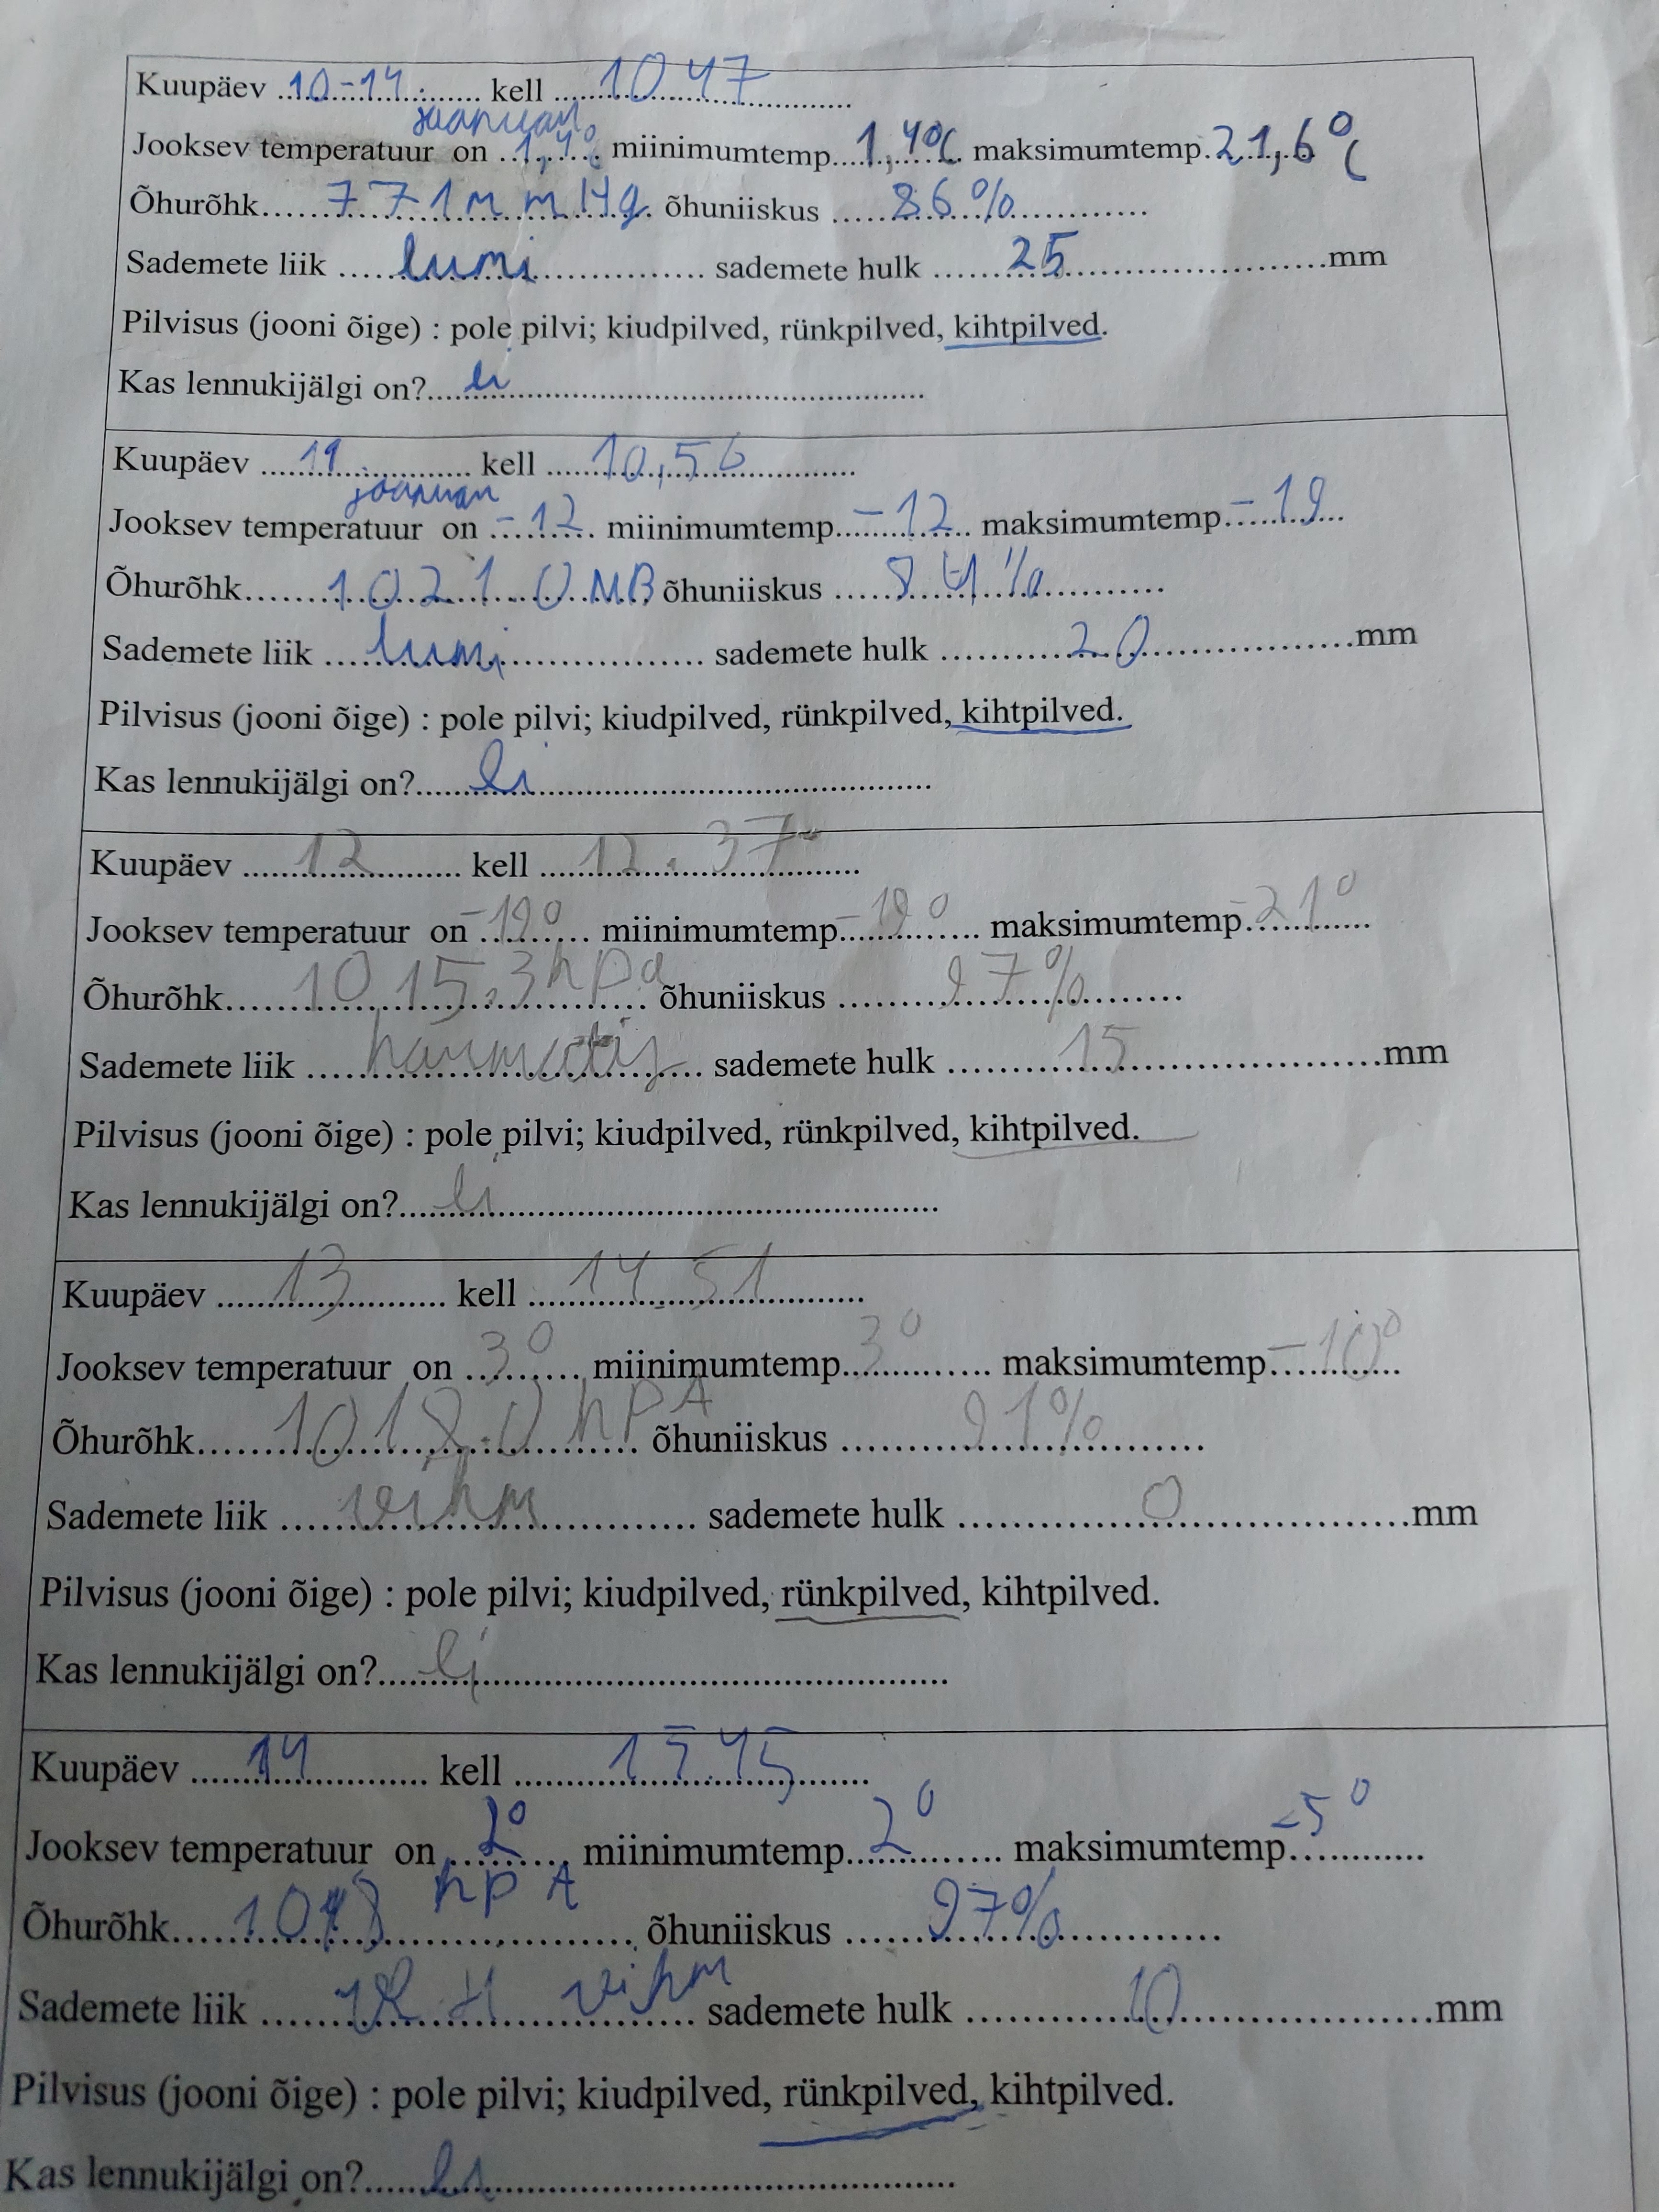 Kuupäev 10-14. kell 10 47
jaanuar
Jooksev temperatuur on 1,4°C miinimumtemp. 1,4°C maksimumtemp. 21,6°C
Õhurõhk 771mmHg õhuniiskus 86%
Sademete liik lumi sademete hulk 25 mm
Pilvisus (jooni õige) : pole pilvi; kiudpilved, rünkpilved, kihtpilved.
Kas lennukijälgi on? ei
Kuupäev 11. kell 10,56
jaanuar
Jooksev temperatuur on -12 miinimumtemp. -12 maksimumtemp. -19
Õhurõhk 1021.0 MB õhuniiskus 84%
Sademete liik lumi sademete hulk 20 mm
Pilvisus (jooni õige) : pole pilvi; kiudpilved, rünkpilved, kihtpilved.
Kas lennukijälgi on? ei
Kuupäev 12 kell 12.37
Jooksev temperatuur on -19° miinimumtemp. -19° maksimumtemp. -21°
Õhurõhk 1015.3hpa õhuniiskus 97%
Sademete liik härmatis sademete hulk 15 mm
Pilvisus (jooni õige) : pole pilvi; kiudpilved, rünkpilved, kihtpilved.
Kas lennukijälgi on? ei
Kuupäev 13 kell 14.51
Jooksev temperatuur on 3° miinimumtemp. 3° maksimumtemp. -10°
Õhurõhk 1018.0 hPA õhuniiskus 91%
Sademete liik vihm sademete hulk 0 mm
Pilvisus (jooni õige) : pole pilvi; kiudpilved, rünkpilved, kihtpilved.
Kas lennukijälgi on? ei
Kuupäev 14 kell 15 45
Jooksev temperatuur on 2° miinimumtemp. 2° maksimumtemp. -5°
Õhurõhk 1018 hPA õhuniiskus 97%
Sademete liik vihm sademete hulk 10 mm
Pilvisus (jooni õige) : pole pilvi; kiudpilved, rünkpilved, kihtpilved.
Kas lennukijälgi on? ei